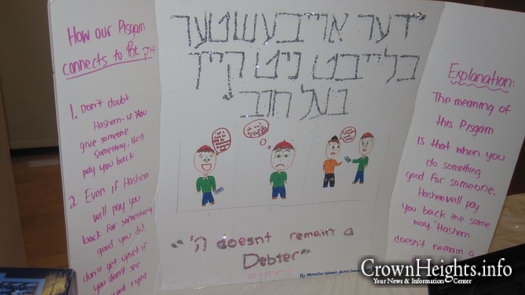 How our Pisgam
connects to
1. Don't doubt
Hashem. if you
give someone
something. He'll
pay you back
2. Even if Hashem
will pay you
back for something
good you did
don't get upset if
you don't see
right
"דער אויבעשטער
בלייבט ניט קיין
בעל חוב"
"'ה doesnt remain a
Debter"
By:
Explanation:
The meaning of
this Pisgam
is that when you
do something
good for someone,
Hashem will pay
you back the same
way "Hashem
doesn't remain a
CrownHeights.info
Your News & Information Center